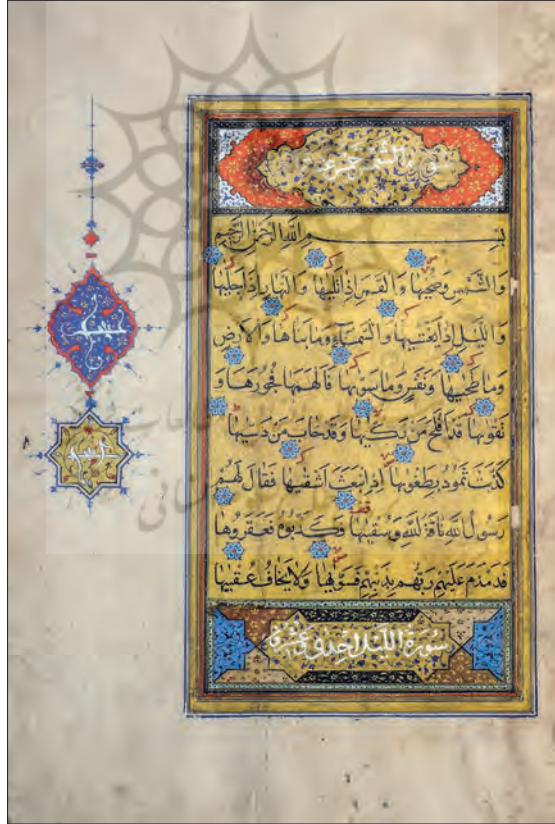 سورة الشمس
بسم الله الرحمن الرحيم
والشمس وضحيها والقمر اذا تليها والنهار اذا جليها
والليل اذا يغشيها والسماء وما بناها والارض
وما طحيها ونفس وما سويها فالهمها فجورها و
تقويها قد افلح من زكيها وقد خاب من دسيها
كذبت ثمود بطغويها اذ انبعث اشقيها فقال لهم
رسول الله ناقة الله وسقيها فكذبوه فعقروها
فدمدم عليهم ربهم بذنبهم فسويها ولا يخاف عقبيها
سورة الليل احدى و